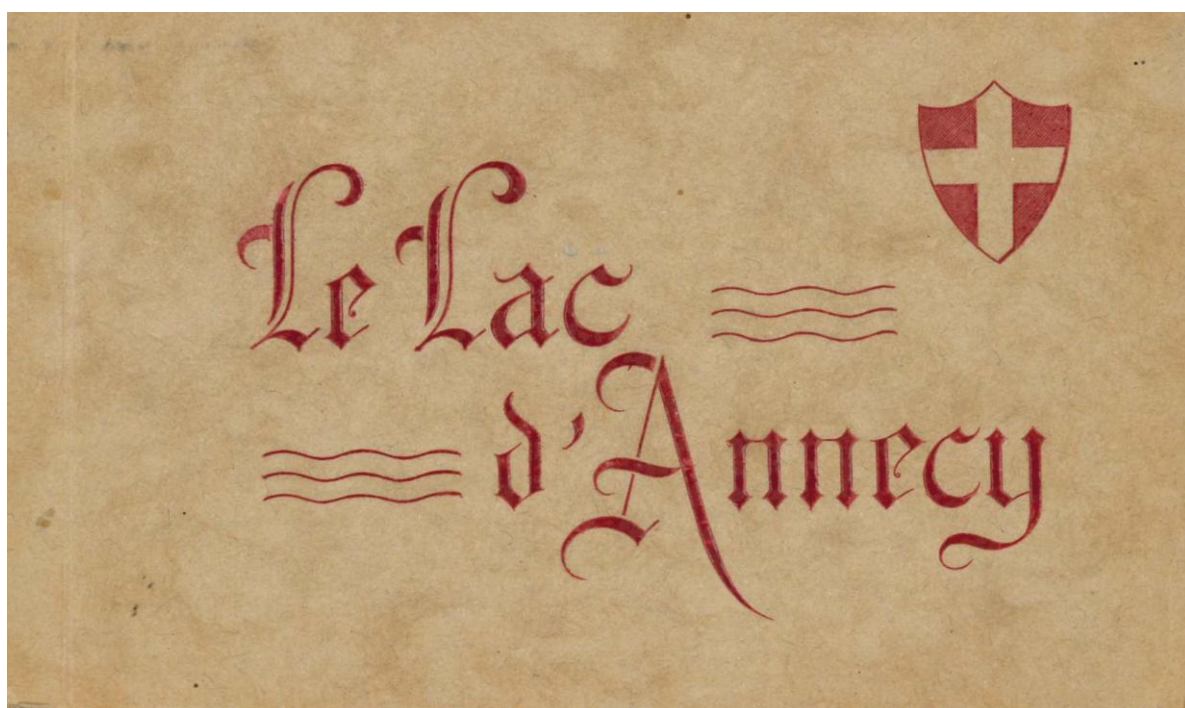 Le Lac
d'Annecy